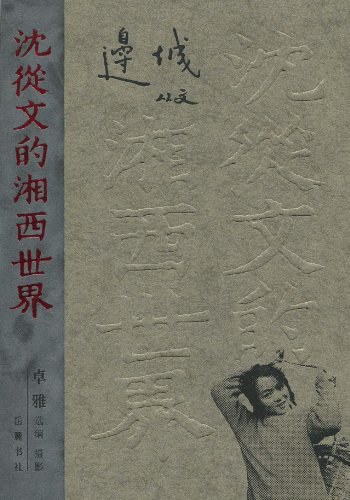 沈從文的湘西世界
卓雅 选编 摄影
岳麓书社
邊城
从文
沈從文的
湘西世界